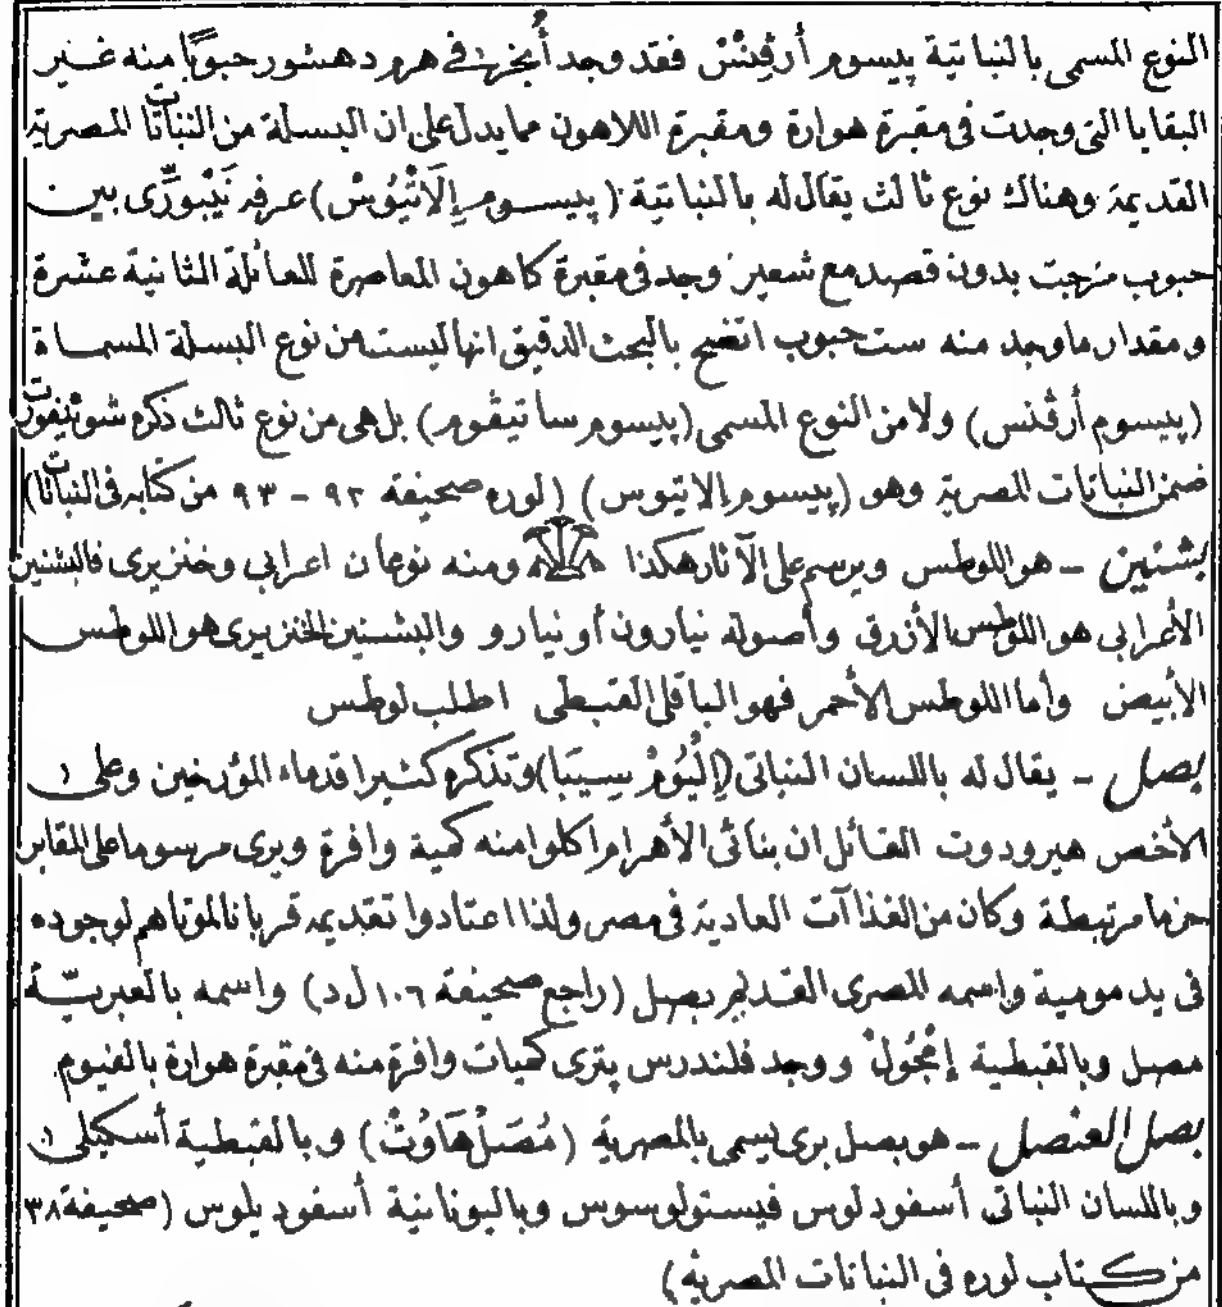 النوع المسمى بالنباتية پيسوم أرڤنش فقد وجد أنجر في هرم دهشور حبوبا منه غير
البقايا التى وجدت فى مقبرة هوارة ومقبرة اللاهون مما يدل على ان البسلة من النباتات المصرية
القديمة وهناك نوع ثالث يقال له بالنباتية (پيسوم إِلَاتْيُوسْ) عرفه نَيْبورِّى بين
حبوب مزجت بدون قصد مع شعير وجد فى مقبرة كاهون المعاصرة للعائلة الثانية عشرة
ومقدار ما وجد منه ست حبوب اتضح بالبحث الدقيق انها ليست من نوع البسلة المسماة
(پيسوم أرڤنس) ولا من النوع المسمى (پيسوم ساتيڤوم) بل هى من نوع ثالث ذكره شوتنفورت
ضمن النباتات المصرية وهو (پيسوم إلاتيوس) (لوره صحيفة ٩٢ - ٩٣ من كتابه فى النباتات)
بشنين - هو اللوطس ويرسم على الآثار هكذا ومنه نوعان اعرابى وخنزيرى فالبشنين
الأعرابى هو اللوطس الأزرق وأصوله نيارون أو نيارو والبشنين الخنزيرى هو اللوطس
الأبيض وأما اللوطس الأحمر فهو الباقلى القبطى اطلب لوطس
بصل - يقال له باللسان النباتى (إِلْيُومْ سِيبَا) وتذكره كثيرا قدماء المؤرخين وعلى
الأخص هيرودوت القائل ان بنائى الأهرام اكلوا منه كمية وافرة ويرى مرسوما على المقابر
حزما مرتبطة وكان من الغذاآت العادية فى مصر ولذا اعتادوا تقديمه قربانا لموتاهم لوجوده
فى يد مومية واسمه المصرى القديم بصل (راجع صحيفة ١٠٦ ل د) واسمه بالعبرية
مصل وبالقبطية إمْجُولْ ووجد فلندرس پترى كميات وافرة منه فى مقبرة هوارة بالفيوم
بصل العنصل - هو بصل برى يسمى بالمصرية (مُصَلْ هَاوُتْ) وبالقبطية أسكيلى
وباللسان النباتى أسفودلوس فيستولوسوس وباليونانية أسفوديلوس (صحيفة ٣٨
من كتاب لوره فى النباتات المصرية)